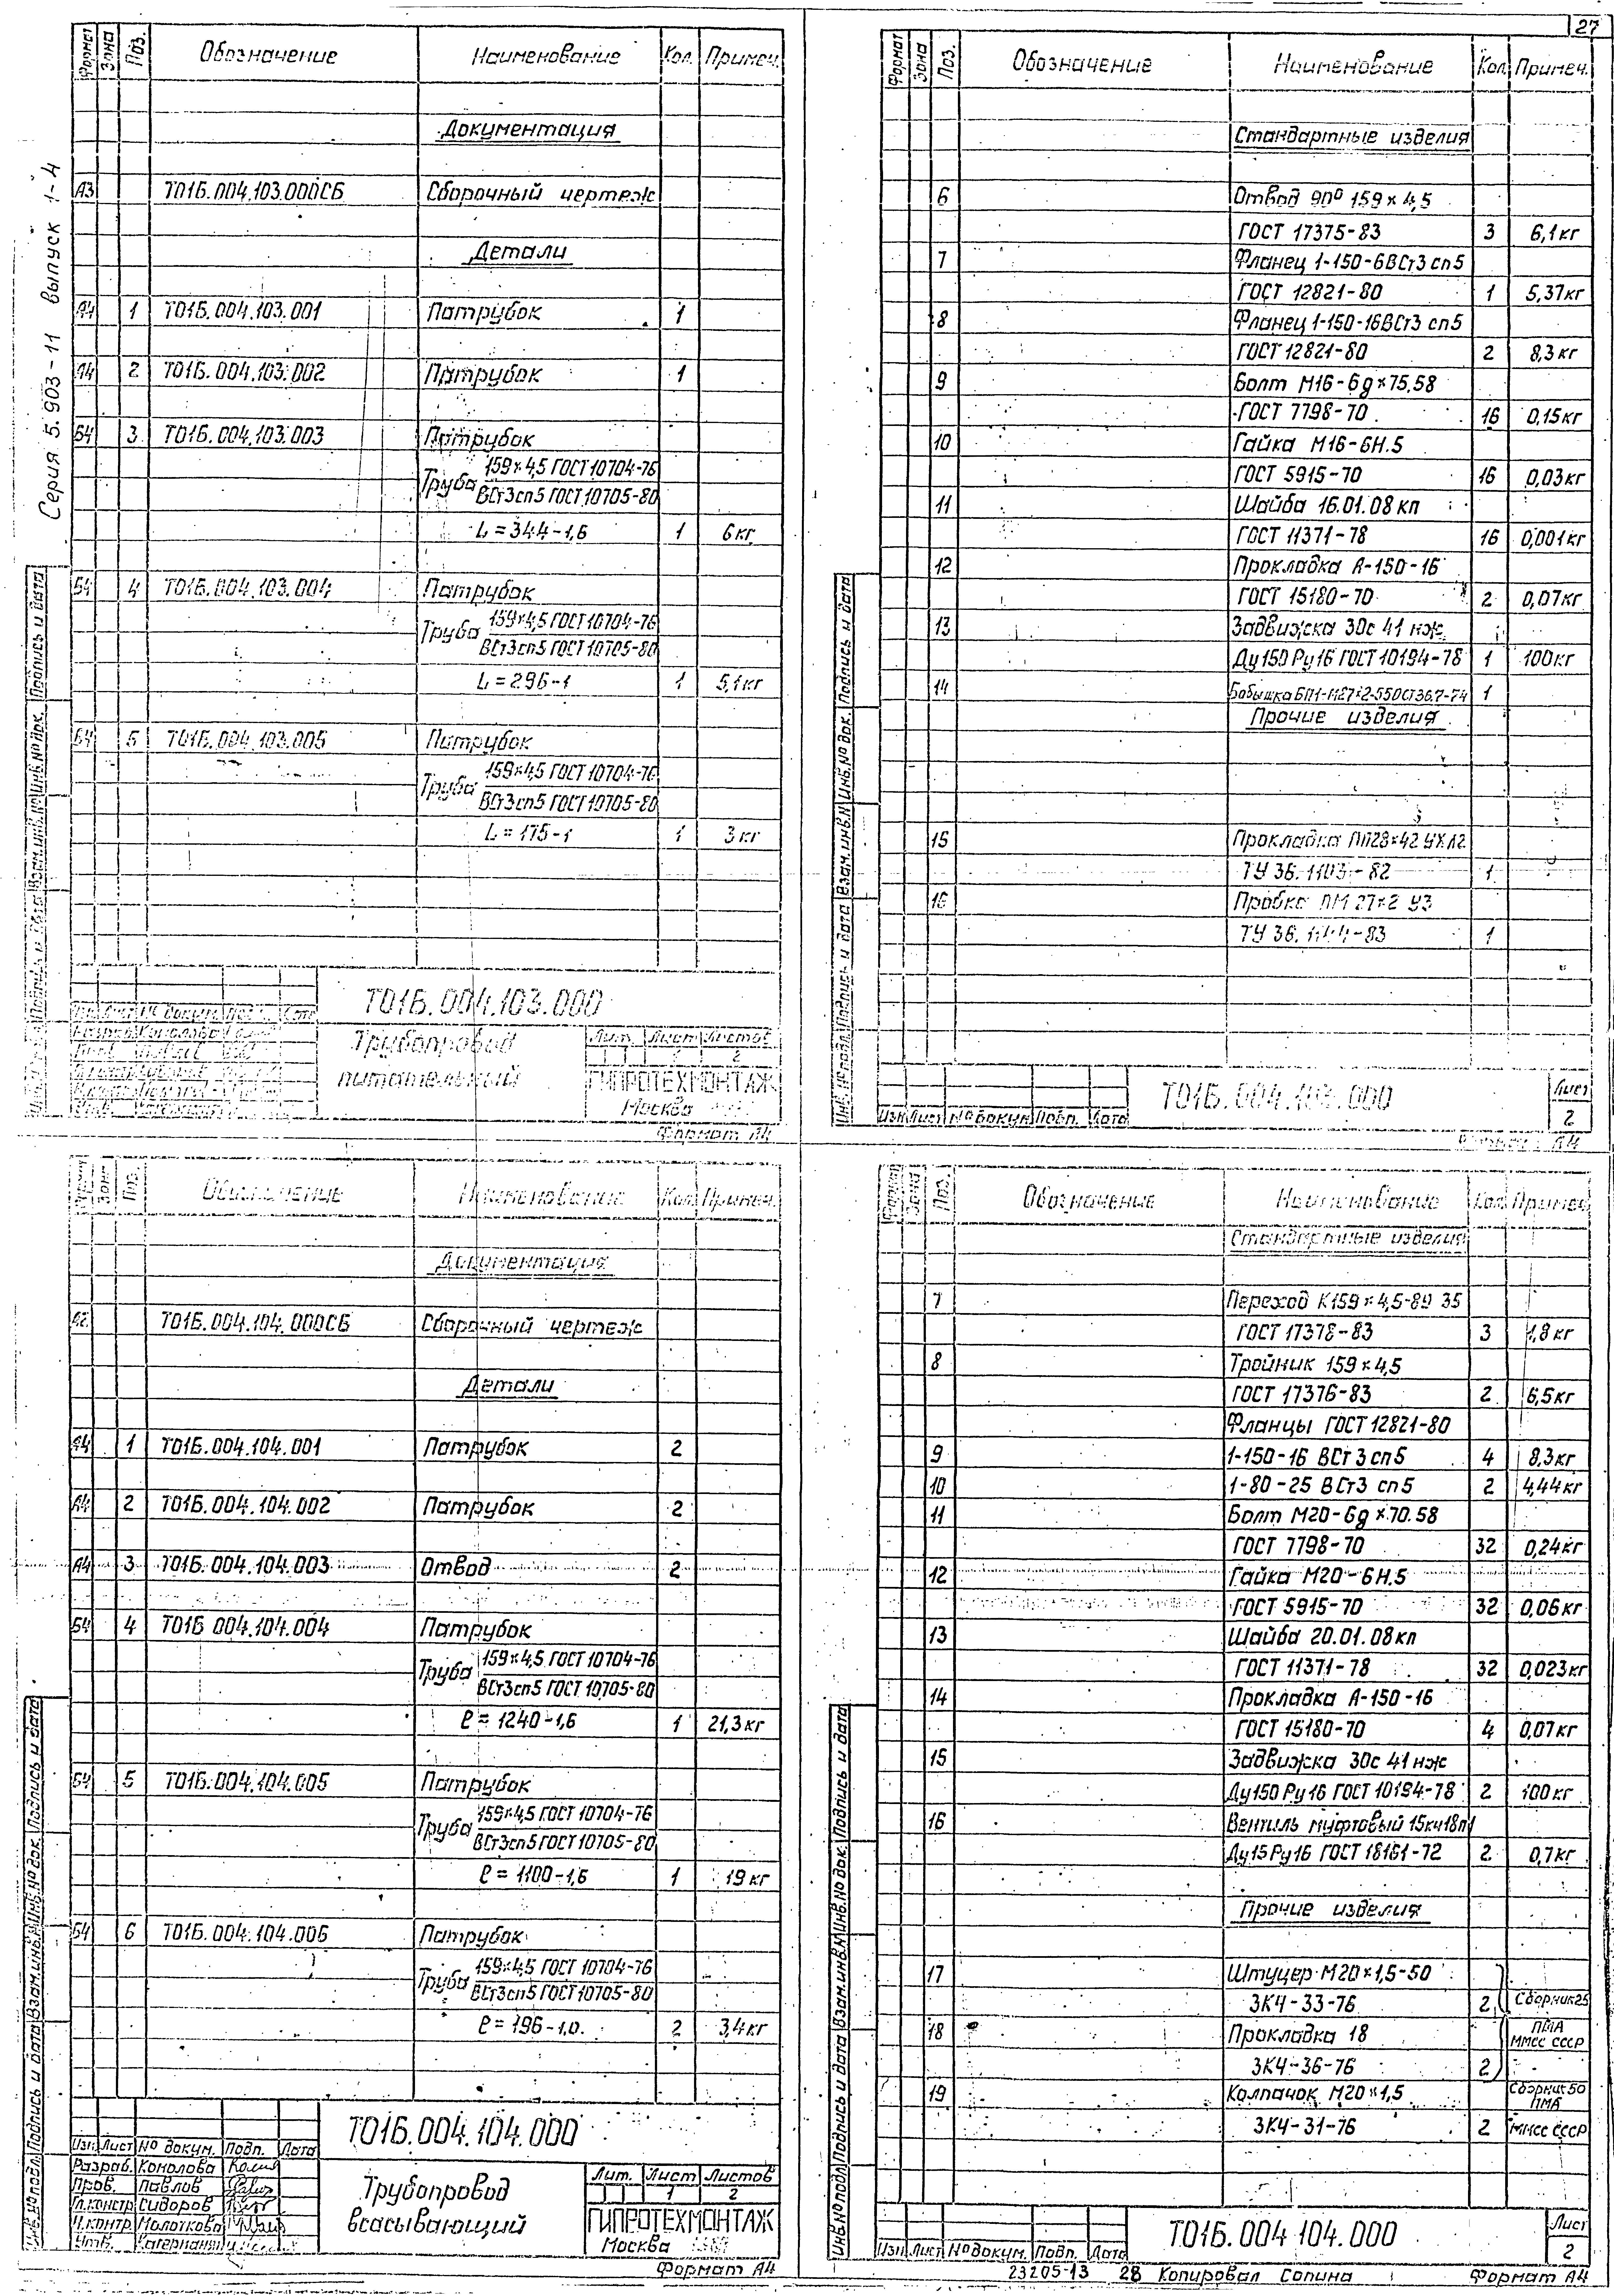 27
Серия 5.903-11 выпуск 1-4
Формат Зона Поз. Обозначение Наименование Кол. Примеч.
Документация
А3 Т01Б.004.103.000СБ Сборочный чертеж
Детали
А4 1 Т01Б.004.103.001 Патрубок 1
А4 2 Т01Б.004.103.002 Патрубок 1
Б4 3 Т01Б.004.103.003 Патрубок
Труба 159×4,5 ГОСТ 10704-76
ВСт3сп5 ГОСТ 10705-80
L=344-1,6 1 6 кг
Б4 4 Т01Б.004.103.004 Патрубок
Труба 159×4,5 ГОСТ 10704-76
ВСт3сп5 ГОСТ 10705-80
L=296-1 1 5,1 кг
Б4 5 Т01Б.004.103.005 Патрубок
Труба 159×4,5 ГОСТ 10704-76
ВСт3сп5 ГОСТ 10705-80
L=175-1 1 3 кг
Т01Б.004.103.000
Трубопровод
питательный
Лит. Лист Листов
1 2
ГИПРОТЕХМОНТАЖ
Москва
Формат А4
Инв.№ подл. Подпись и дата Взам.инв.№ Инв.№ док. Подпись и дата
Формат Зона Поз. Обозначение Наименование Кол. Примеч.
Стандартные изделия
6 Отвод 90° 159×4,5
ГОСТ 17375-83 3 6,1 кг
7 Фланец 1-150-6ВСт3 сп5
ГОСТ 12821-80 1 5,37 кг
8 Фланец 1-150-16ВСт3 сп5
ГОСТ 12821-80 2 8,3 кг
9 Болт М16-6g×75.58
ГОСТ 7798-70 16 0,15 кг
10 Гайка М16-6Н.5
ГОСТ 5915-70 16 0,03 кг
11 Шайба 16.01.08 кп
ГОСТ 11371-78 16 0,001 кг
12 Прокладка А-150-16
ГОСТ 15180-70 2 0,07 кг
13 Задвижка 30с 41 нж
Ду150 Ру16 ГОСТ 10194-78 1 100 кг
14 Бобышка БП1-М27×2-55 ОСТ36.7-74 1
Прочие изделия
15 Прокладка ПП28×42 УХЛ2
ТУ 36.1103-82 1
16 Пробка ПМ 27×2 У3
ТУ 36.1144-83 1
Изм. Лист № докум. Подп. Дата
Т01Б.004.103.000
Лист
2
Формат А4
Инв.№ подл. Подпись и дата Взам.инв.№ Инв.№ док. Подпись и дата
Зона Поз. Обозначение Наименование Кол. Примеч.
Документация
А2 Т01Б.004.104.000СБ Сборочный чертеж
Детали
А4 1 Т01Б.004.104.001 Патрубок 2
А4 2 Т01Б.004.104.002 Патрубок 2
А4 3 Т01Б.004.104.003 Отвод 2
Б4 4 Т01Б 004.104.004 Патрубок
Труба 159×4,5 ГОСТ 10704-76
ВСт3сп5 ГОСТ 10705-80
ℓ=1240-1,6 1 21,3 кг
Б4 5 Т01Б.004.104.005 Патрубок
Труба 159×4,5 ГОСТ 10704-76
ВСт3сп5 ГОСТ 10705-80
ℓ=1100-1,6 1 19 кг
Б4 6 Т01Б.004.104.006 Патрубок
Труба 159×4,5 ГОСТ 10704-76
ВСт3сп5 ГОСТ 10705-80
ℓ=196-1,0 2 3,4 кг
Т01Б.004.104.000
Изм. Лист № докум. Подп. Дата
Разраб. Коколова
Пров. Павлов
Гл.констр Сидоров
Н.контр. Молоткова
Утв.
Трубопровод
всасывающий
Лит. Лист Листов
1 2
ГИПРОТЕХМОНТАЖ
Москва
Формат А4
Инв.№ подл. Подпись и дата Взам.инв.№ Инв.№ док. Подпись и дата
Формат Зона Поз. Обозначение Наименование Кол. Примеч.
Стандартные изделия
7 Переход К159×4,5-89 35
ГОСТ 17378-83 3 1,8 кг
8 Тройник 159×4,5
ГОСТ 17376-83 2 6,5 кг
Фланцы ГОСТ 12821-80
9 1-150-16 ВСт 3 сп5 4 8,3 кг
10 1-80-25 ВСт3 сп5 2 4,44 кг
11 Болт М20-6g×70.58
ГОСТ 7798-70 32 0,24 кг
12 Гайка М20-6Н.5
ГОСТ 5915-70 32 0,06 кг
13 Шайба 20.01.08 кп
ГОСТ 11371-78 32 0,023 кг
14 Прокладка А-150-16
ГОСТ 15180-70 4 0,07 кг
15 Задвижка 30с 41 нж
Ду150 Ру16 ГОСТ 10194-78 2 100 кг
16 Вентиль муфтовый 15кч18п1
Ду15 Ру16 ГОСТ 18161-72 2 0,7 кг
Прочие изделия
17 Штуцер М20×1,5-50
ЗК4-33-76 2 Сборник 25
18 Прокладка 18 ПМА ММСС СССР
ЗК4-36-76 2
19 Колпачок М20×1,5 Сборник 50 ПМА
ЗК4-31-76 2 ММСС СССР
Изм. Лист № докум. Подп. Дата
Т01Б.004 104.000
Лист
2
Инв.№ подл. Подпись и дата Взам.инв.№ Инв.№ док. Подпись и дата
23205-13 28 Копировал Сопина Формат А4